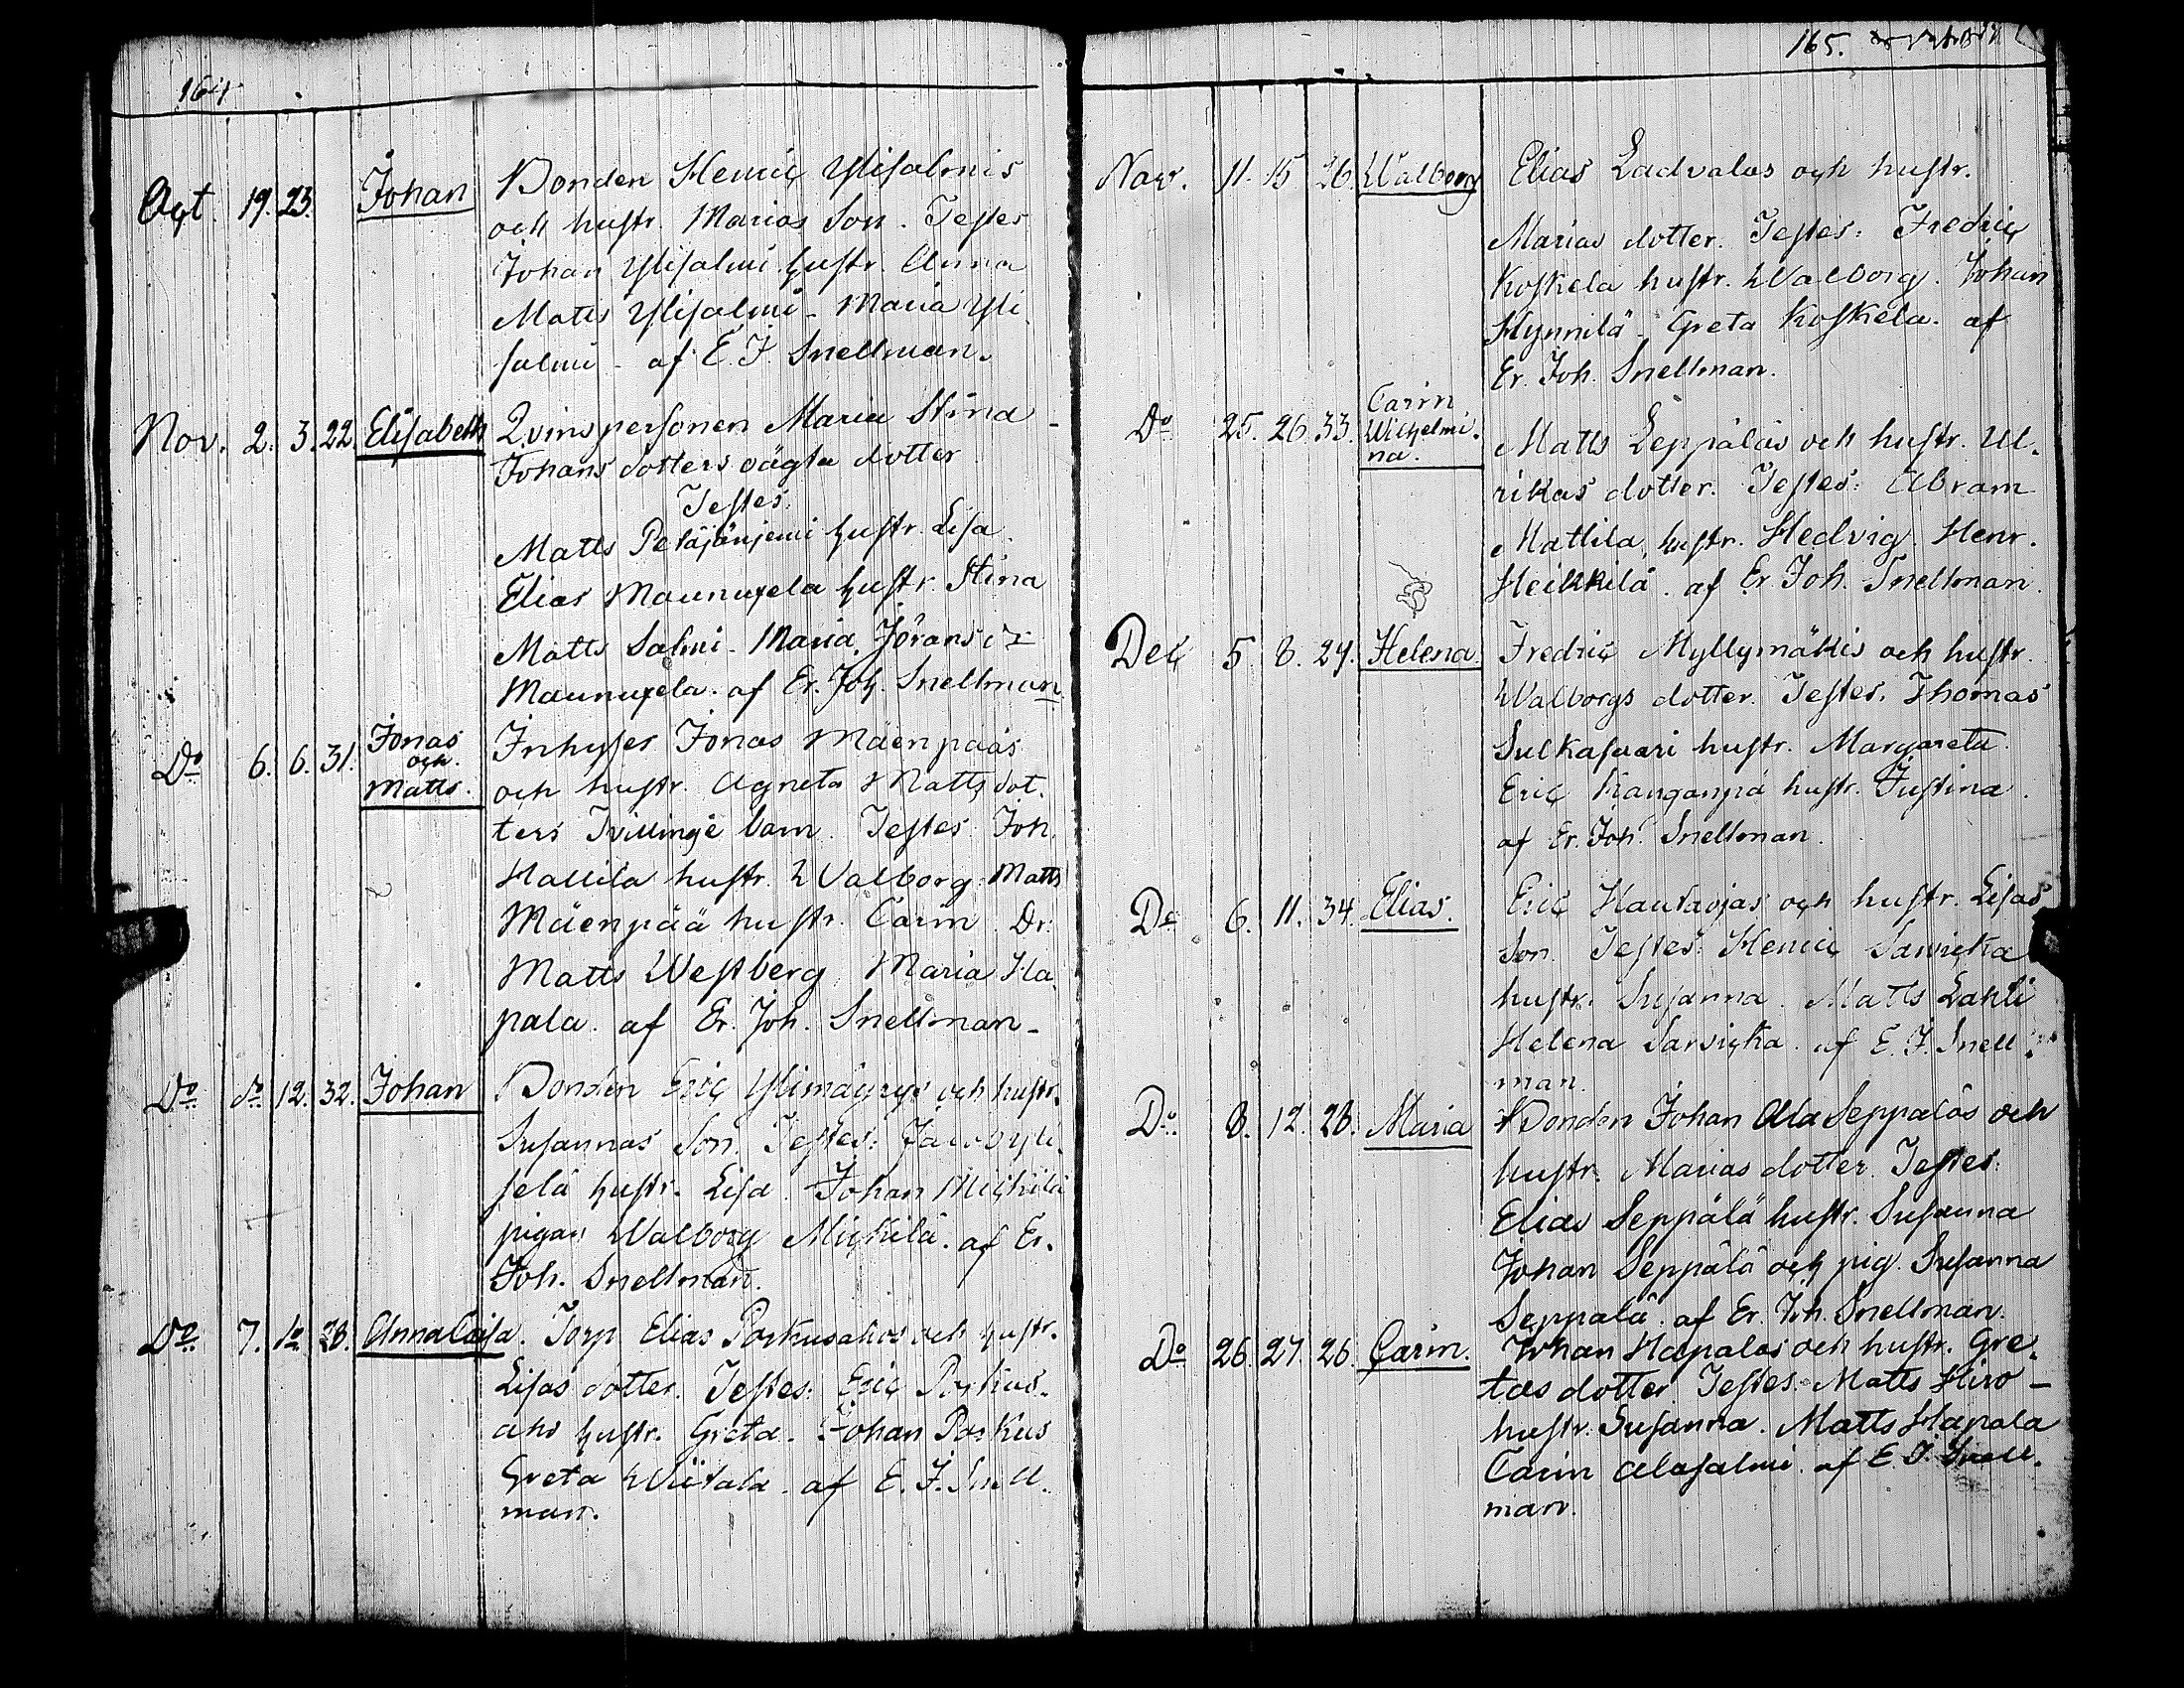 164
Oct. 19. 23. Johan Bonden Henric Ylisalmis
och hustr. Marias Son. Testes
Johan Ylisalmi hustr. Anna
Matts Ylisalmi - Maria Yli
salmi - af E. J. Snellman.
Nov. 2. 3. 22. Elisabeth Qvinspersonen Maria Stina
Johans dotters oägta dotter
Testes:
Matts Peräjänjemi hustr. Lisa.
Elias Maunuxela hustr. Stina
Matts Salmi - Maria Jörans dr
Maunuxela. af Er. Joh. Snellman
Do 6. 6. 31. Jonas och Matts. Inhyses Jonas Mäenpääs
och hustr. Agneta Matts dot.
ters Tvillinge barn. Testes: Joh.
Hallila hustr. Walborg. Matts
Mäenpää hustr. Carin. Dr.
Matts Westberg Maria Ha
pala. af Er. Joh. Snellman -
Do do 12. 32. Johan Bonden Eric Ylimäyrys och hustr.
Susannas Son. Testes: Jacob Yli
selä hustr. Lisa. Johan Mickilä
pigan Walborg Mickilä. af Er.
Joh. Snellman.
Do 7. 12. 28. Anna Caisa. Torp. Elias Porkusahos och hustr.
Lisas dotter. Testes: Eric Porkus-
aho hustr. Greta. Johan Porkus
Greta Wiitala. af E. J. Snell.
man.
165.
Nov. 11. 15. 26. Walborg Elias Ladvalas och hustr.
Marias dotter. Testes: Fredric
Koskela hustr. Walborg. Johan
Hynnilä - Greta Koskela. af
Er. Joh. Snellman.
Do 25. 26. 33. Carin Wilhelmi. na. Matts Leppäläs och hustr. Ul.
rikas dotter. Testes: Abram
Mattila, hustr. Hedvig. Henr.
Heikkilä. af Er. Joh. Snellman.
Dec 5. 8. 27. Helena Fredric Myllymäkis och hustr.
Walborgs dotter. Testes. Thomas
Sulkasaari hustr. Margareta.
Eric Kanganpä hustr. Justina.
af Er. Joh. Snellman.
Do 6. 11. 34. Elias. Eric Hautaojas och hustr. Lisas
Son. Testes: Henric Sarvicka
hustr. Susanna. Matts Lahti
Helena Sarvicka. af E. J. Snell.
man.
Do 8. 12. 28. Maria Bonden Johan Ala Seppäläs och
hustr. Marias dotter. Testes:
Elias Seppälä hustr. Susanna
Johan Seppälä och pig. Susanna
Seppälä. af Er. Joh. Snellman.
Do 26. 27. 26. Carin. Johan Hapalas och hustr. Gre.
tas dotter Testes. Matts Hiro -
hustr. Susanna. Matts Hapala
Carin Alasalmi. af E. J. Snell.
man.